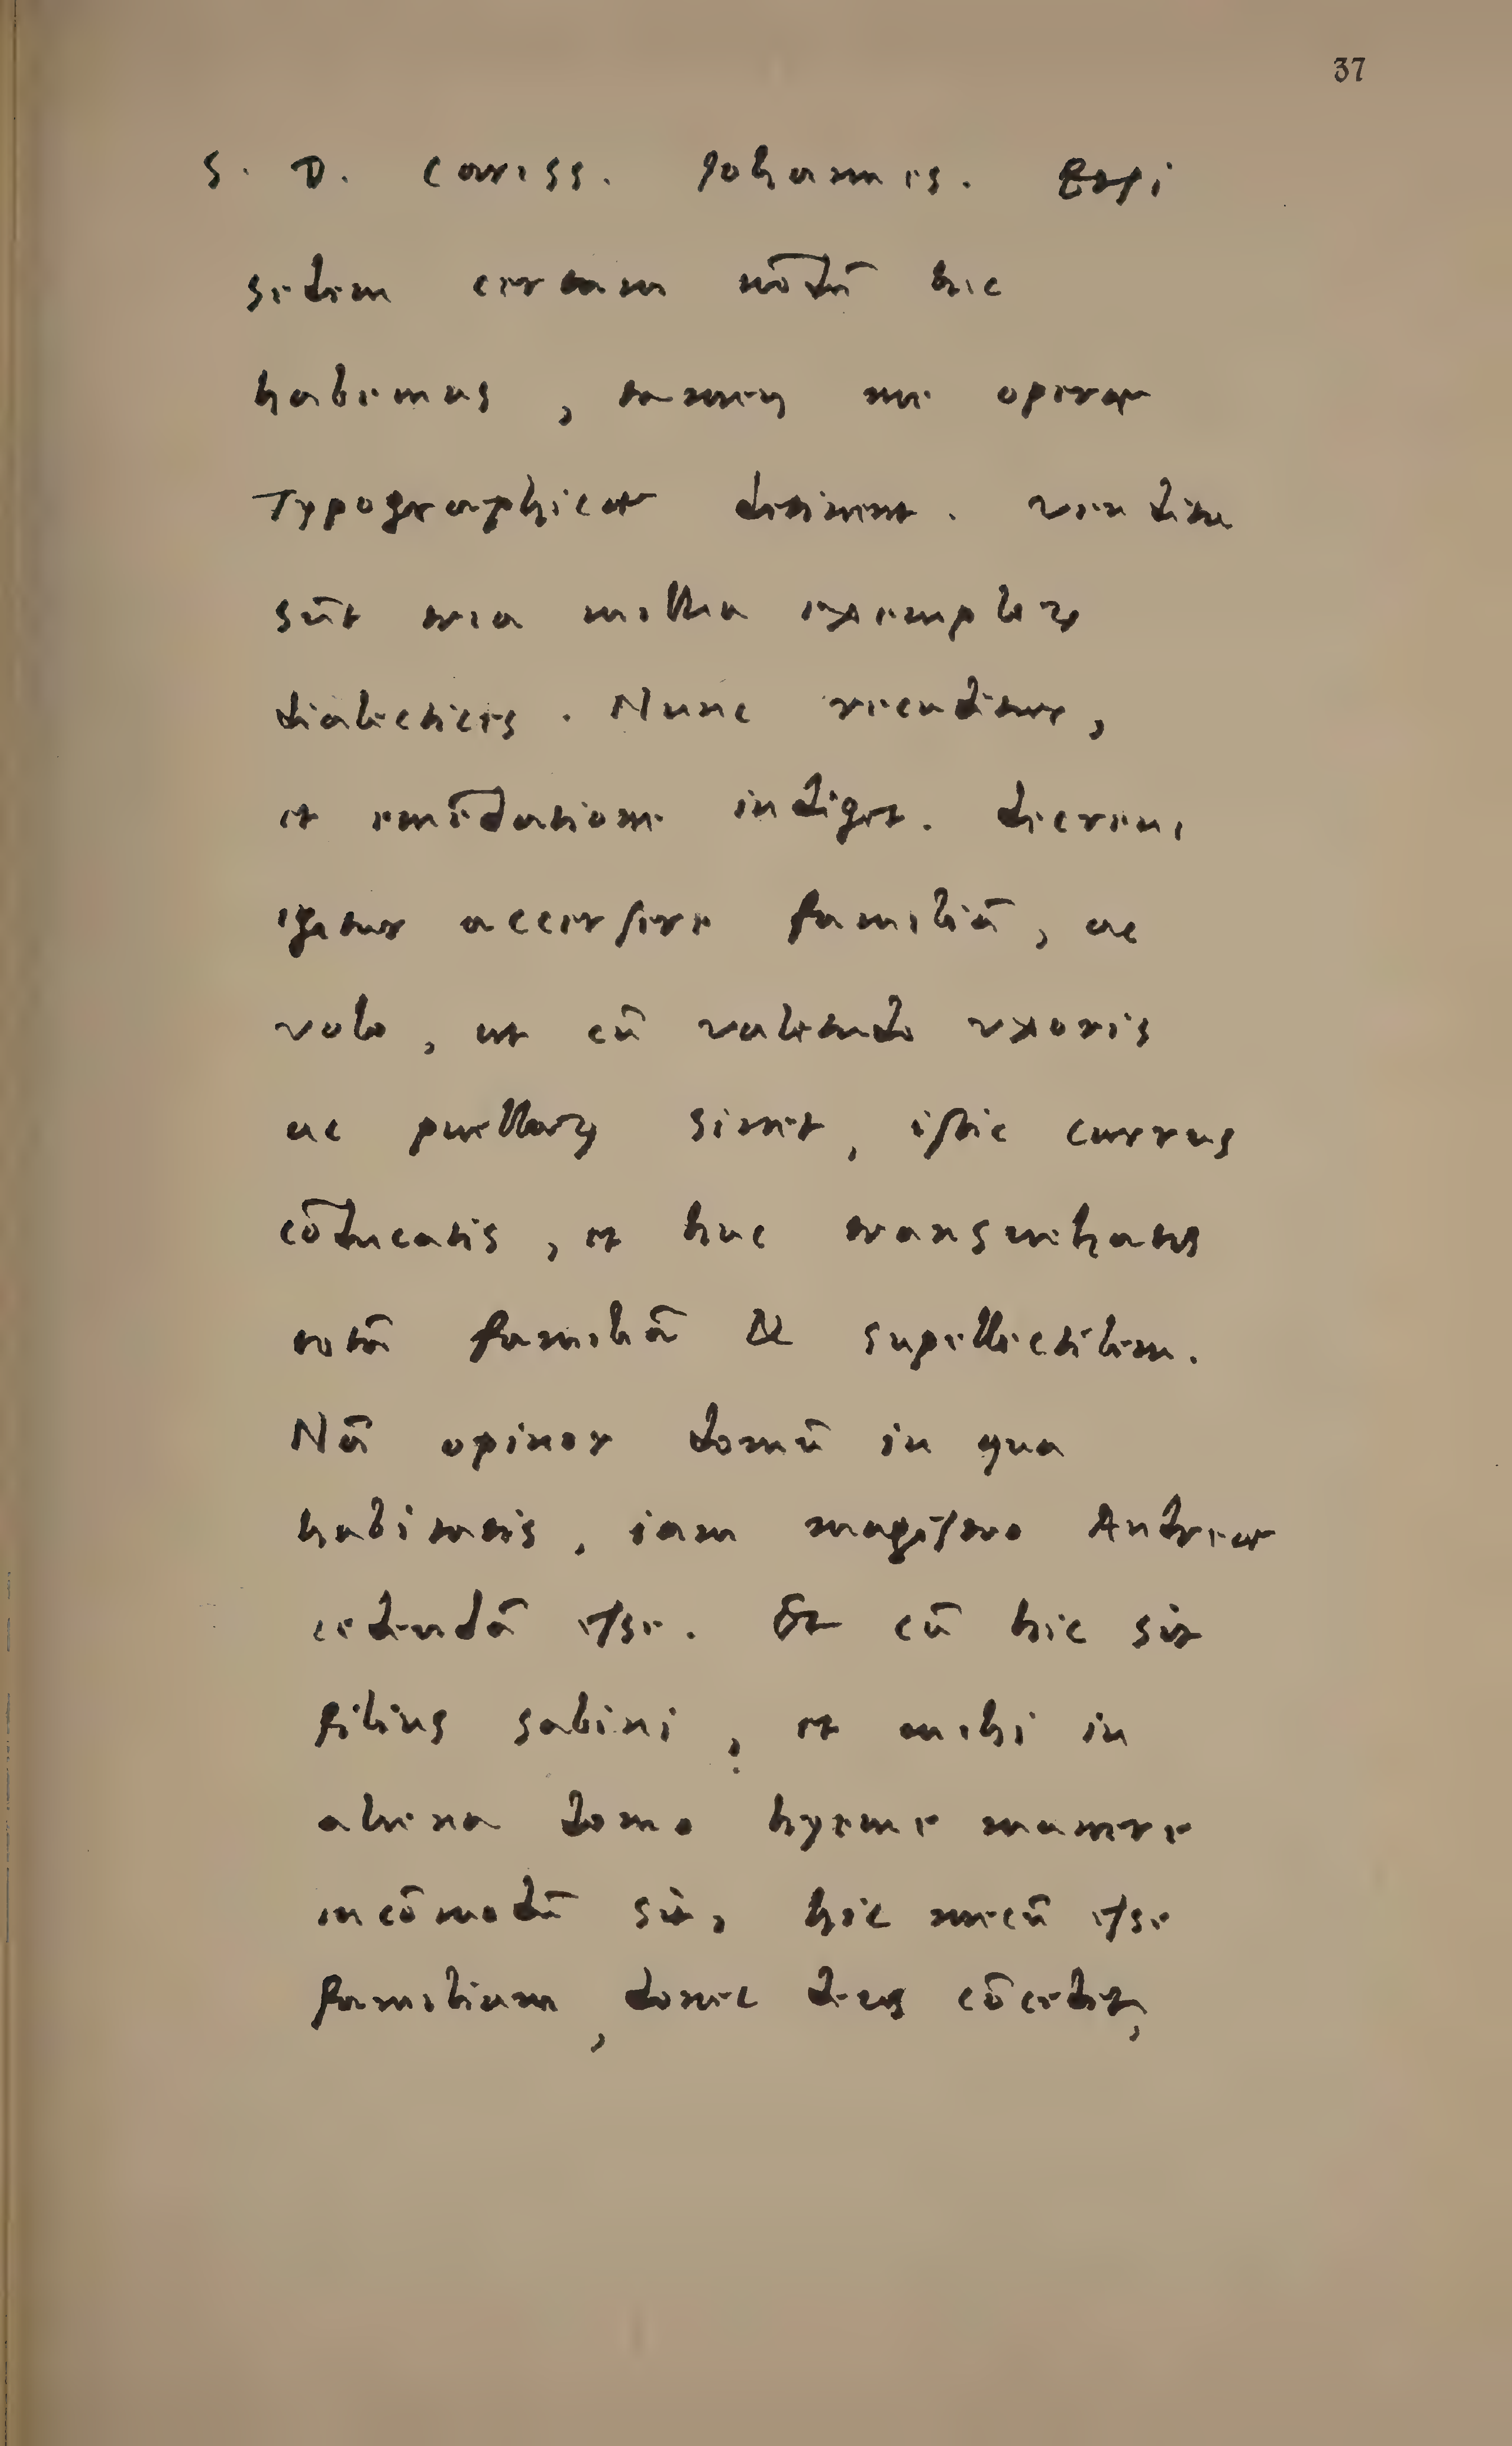 37
S. D. Cariss. Johannes. Etsi
sedem certam nōdū hic
habemus, tamen me operæ
Typographicæ detinent. vendita
sūt tria millia exemplaꝝ
dialectices. Nunc recuditur,
et emēdatione indiget. decreui
igitur accersere familiā, ac
volo, ut cū valetudo vxoris
ac puellaꝝ sinet, istic currus
cōducatis, et huc transuehatis
totā familiā & supellectilem.
Nā opinor domū in qua
habitatis, iam magistro Andreæ
cedendā esse. Et cū hic sit
filius sabini, et mihi in
aliena domo hyeme manere
incōmodū sit, hic mecū esse
familiam, donec deus cōcedet,